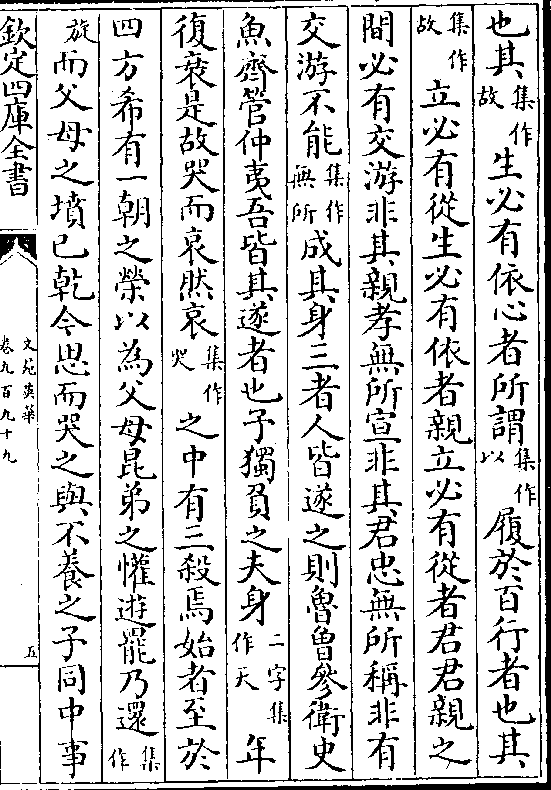 也其集作故生必有依心者所謂集作以履於百行者也其
集作故立必有從生必有依者親立必有從者君君親之
間必有交游非其親孝無所宣非其君忠無所稱非有
交游不能集作無所成其身三者人皆遂之則魯曾參衛史
魚齊管仲夷吾皆其遂者也予獨負之夫身二字集作天年
復衰是故哭而哀然哀集作哭之中有三殺焉始者至於
四方希有一朝之榮以為父母昆弟之懽遊罷乃還集作
旋而父母之墳已乾今思而哭之與不養之子同中事
欽定四庫全書
文苑英華
卷九百九十九
五